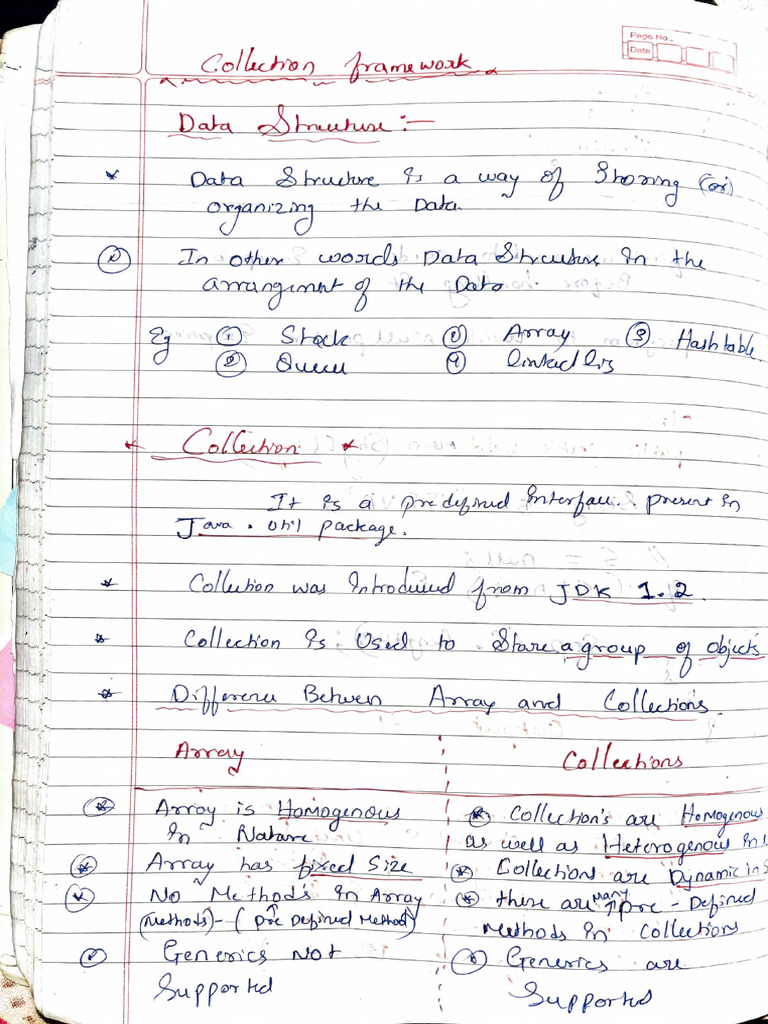 Page No..
Date
Collection framework
Data Structure :-
* Data Structure is a way of Storing (or)
organizing the Data.
In other words Data Structure In the
arrangment of the Data.
Eg ① Stack ③ Array ⑤ Hashtable
② Queue ④ linked lis
* Collection *
It is a predefined Interface. present in
Java . Util package.
* Collection was Introduced from JDK 1.2.
* Collection is Used to Store a group of objects
* Difference Between Array and Collections.
Array Collections
* Array is Homogenous * Collection's are Homogenous
In Nature as well as Heterogenous In
* Array has fixed Size * Collections are Dynamic in S
* No Methods In Array * there are many pre-Defined
(Methods) - (Pre Defined Method) Methods In Collections
* Generics Not * Generics are
Supported Supported